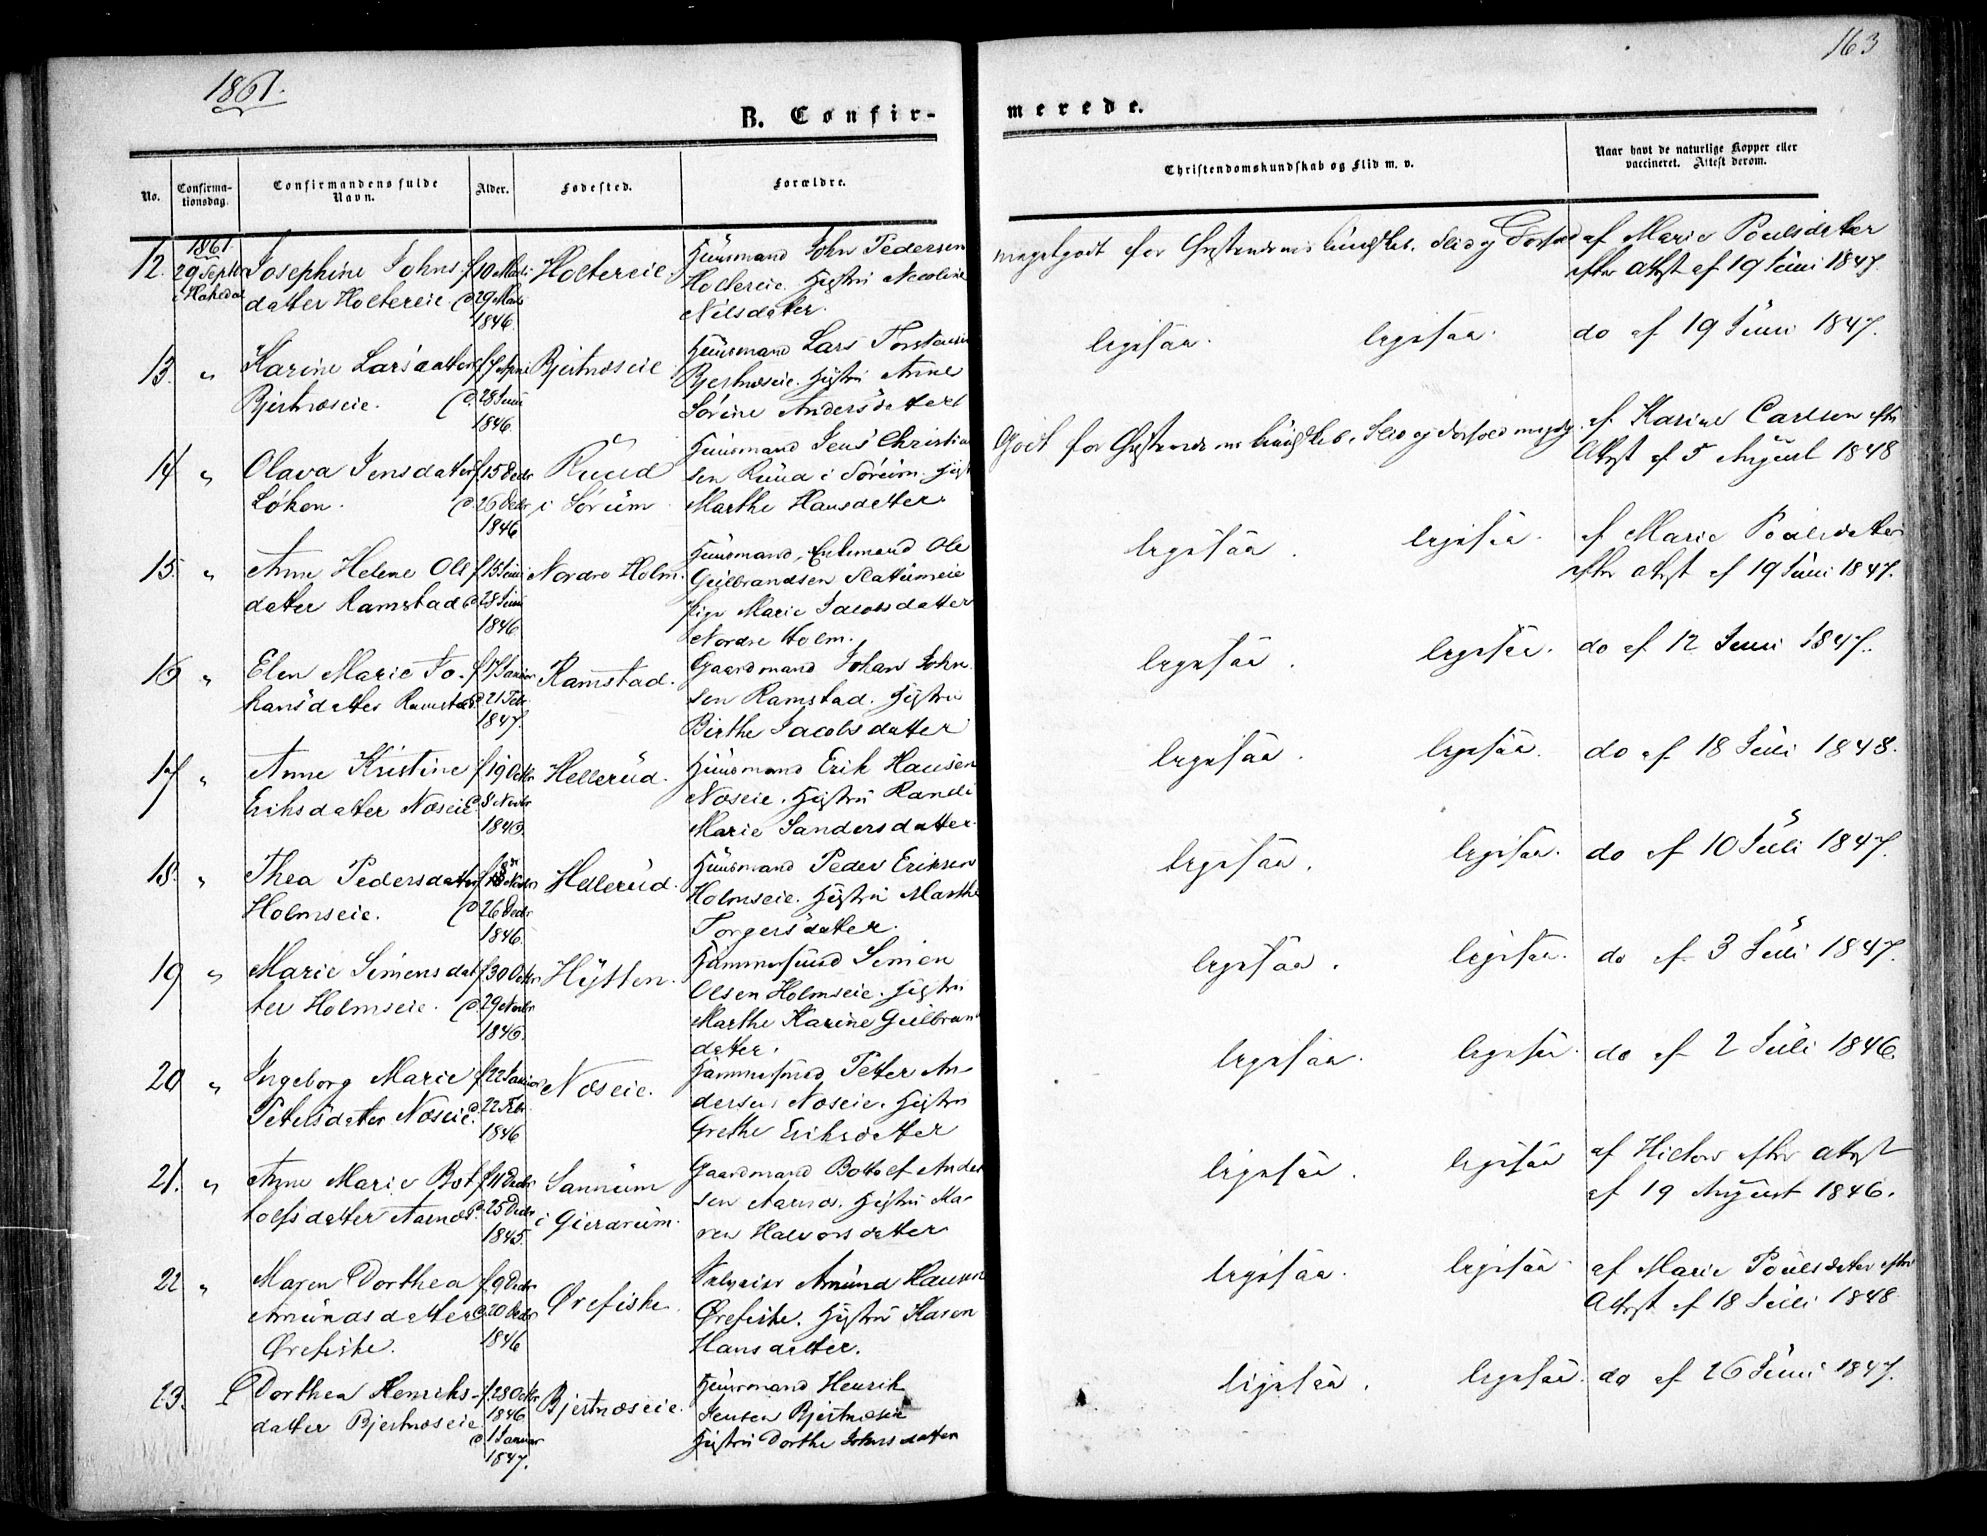 163
1861.
B. Confir-
merede.
No.
Confirma-
tionsdag.
Confirmandens fulde
Navn.
Alder.
Fødested.
Forældre.
Christendomskundskab og Flid m. v.
Naar havt de naturlige Kopper eller
vaccineret. Attest derom.
12.
1861
29 Septbr
i Hakedal
Josephine Johns
datter Holtereie
f 10 Marti
d 29 Marts
1846.
Holtereie
Huusmand John Pedersen
Holtereie. Hustru Nicoline
Nilsdatter.
megetgodt for Christendomskundskab. Flid og Forhold
af Marie Poulsdatter
efter Attest af 19 Juni 1847.
13.
"
Karine Larsdatter
Bjertnæseie.
f 17 April
d. 28 Juni
1846.
Bjertnæseie
Huusmand Lars Torstensen
Bjertnæseie. Hustru Anne
Sørine Andersdatter
ligesaa.
ligesaa.
do af 19 Juni 1847.
14
"
Olava Jensdatter
Løken.
f 15 Decbr
d. 26 Decbr
1846
Ruud
i Sørum
Huusmand Jens Christian
sen Ruud i Sørum. Hust
Marthe Hansdatter.
Godt for Christendomskundskab. Flid og Forhold meget g.
af Karine Carlsen efter
Attest af 5 August 1848
15.
"
Anne Helene Ols
datter Ramstad
f 15 Juni
d 28 Juni
1846
Nordre Holm.
Huusmand, Enkemand Ole
Gulbrandsen Slatumeie
Pige Marie Jacobsdatter
Nordre Holm.
ligesaa.
ligesaa.
af Marie Poulsdatter
efter Attest af 19 Juni 1847.
16
"
Elen Marie Jo-
hansdatter Ramstad.
f 17 Januar
d 21 Febr.
1847.
Ramstad.
Gaardmand Johan John
sen Ramstad. Hustru
Birthe Jacobsdatter
ligesaa.
ligesaa.
do af 12 Juni 1847.
17
"
Anne Kristine
Eriksdatter Næseie
f 19 Octbr
d 8 Novbr
1846.
Hellerud.
Huusmand Erik Hansen
Næseie. Hustru Randi
Marie Sandersdatter.
ligesaa.
ligesaa.
do af 18 Juli 1848.
18.
"
Thea Pedersdatter
Holmseie.
d 26 Decbr
1846.
Hellerud.
Huusmand Peder Eriksen
Holmseie. Hustru Marthe
Torgersdatter.
ligesaa.
ligesaa.
do af 10 Juli 1847.
19
"
Marie Simensdat
ter Holmseie.
f 30 Octbr
d 29 Novbr
1846.
Hytten.
Simen
Olsen Holmseie. Hustru
Marthe Karine Gulbrands
datter.
ligesaa.
ligesaa.
do af 3 Juli 1847.
20
"
Ingeborg Marie
Petersdatter Næseie.
f 22 Januar
d 22 Febr.
1846
Næseie.
Petter An-
dersen Næseie. Hustru
Grethe Eriksdatter
ligesaa.
ligesaa.
do af 2 Juli 1846.
21.
"
Anne Marie Bot
tolfsdatter Aarnæs.
f 11 Decbr
d 25 Decbr
1845.
Sannum
i Gierdrum.
Gaardmand Bottolf Ander
sen Aarnæs. Hustru Ka-
ren Halvorsdatter
ligesaa.
ligesaa
efter Attest
af 19 August 1846.
22
"
Maren Dorthea
Amundsdatter
Ørefiske.
f 9 Decbr
d 20 Decbr
1846
Ørefiske.
Selveier Amund Hansen
Ørefiske. Hustru Karen
Hansdatter.
ligesaa.
ligesaa.
af Marie Poulsdatter efter
Attest af 18 Juli 1848
23.
Dorthea Henriks-
datter Bjertnæseie
f 28 Octbr
1846
d 1 Januar
1847.
Bjertnæseie.
Huusmand Henrik
Jensen Bjertnæseie
Hustru Dorthe Johnsdatter
ligesaa.
ligesaa.
do af 26 Juni 1847.